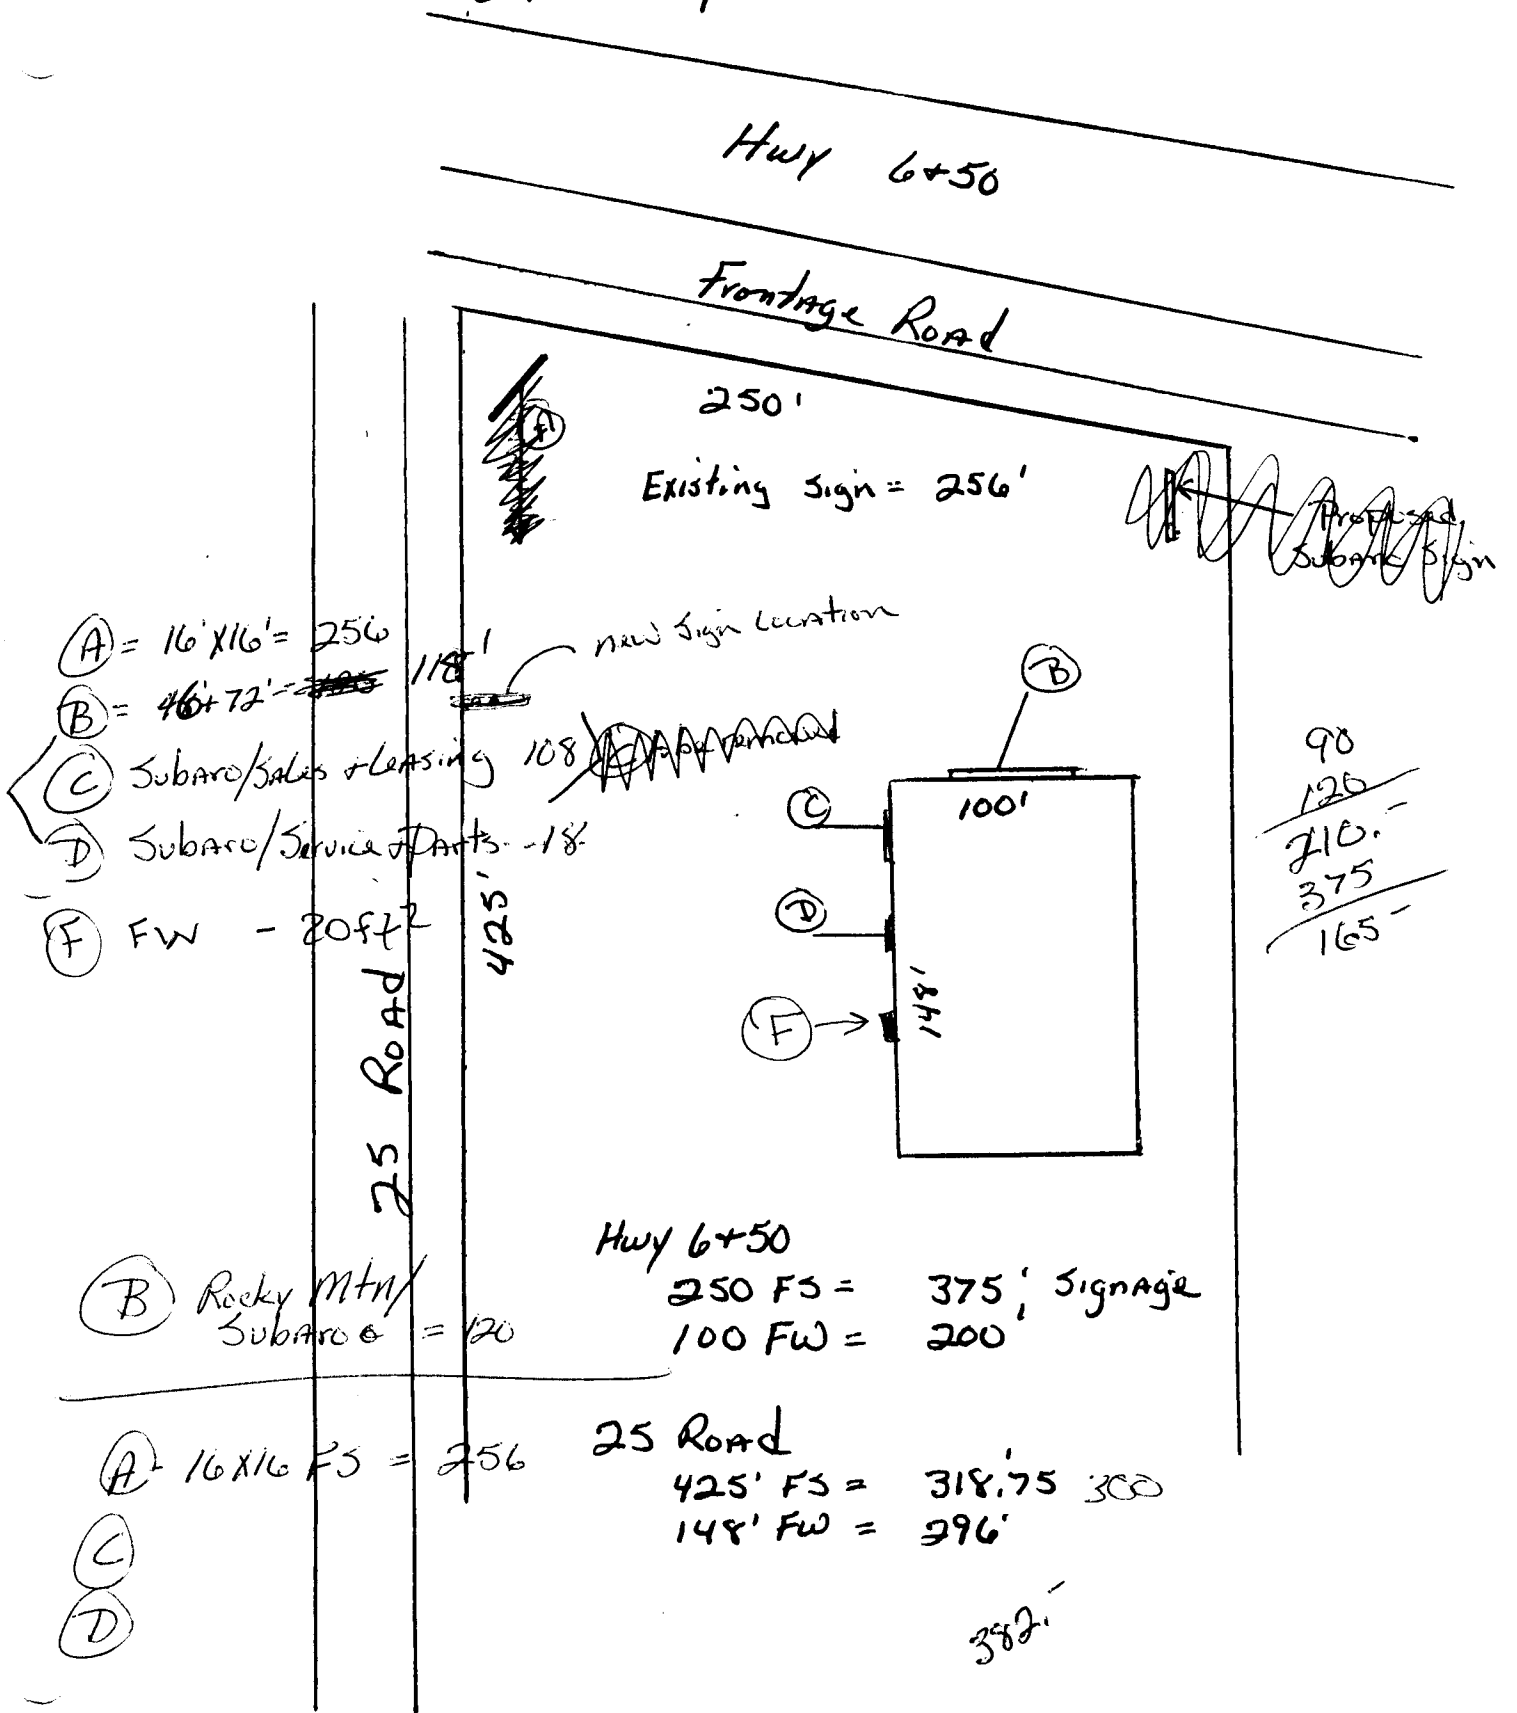 Hwy 6+50
Frontage Road
250'
Existing Sign = 256'
A
Proposed
Subaru Sign
A = 16'X16' = 256
B = 46'+72' = 118'
new Sign Location
C Subaro/Sales + Leasing 108
D Subaro/Service + Parts - 18
F FW - 20ft²
B
C
100'
D
F
148'
425'
25 Road
90
120
210.-
375
165-
B Rocky Mtn/
Subaro = 120
A - 16X16 FS = 256
C
D
Hwy 6+50
250 FS = 375' Signage
100 FW = 200'
25 Road
425' FS = 318.75' 300
148' FW = 296'
382.-